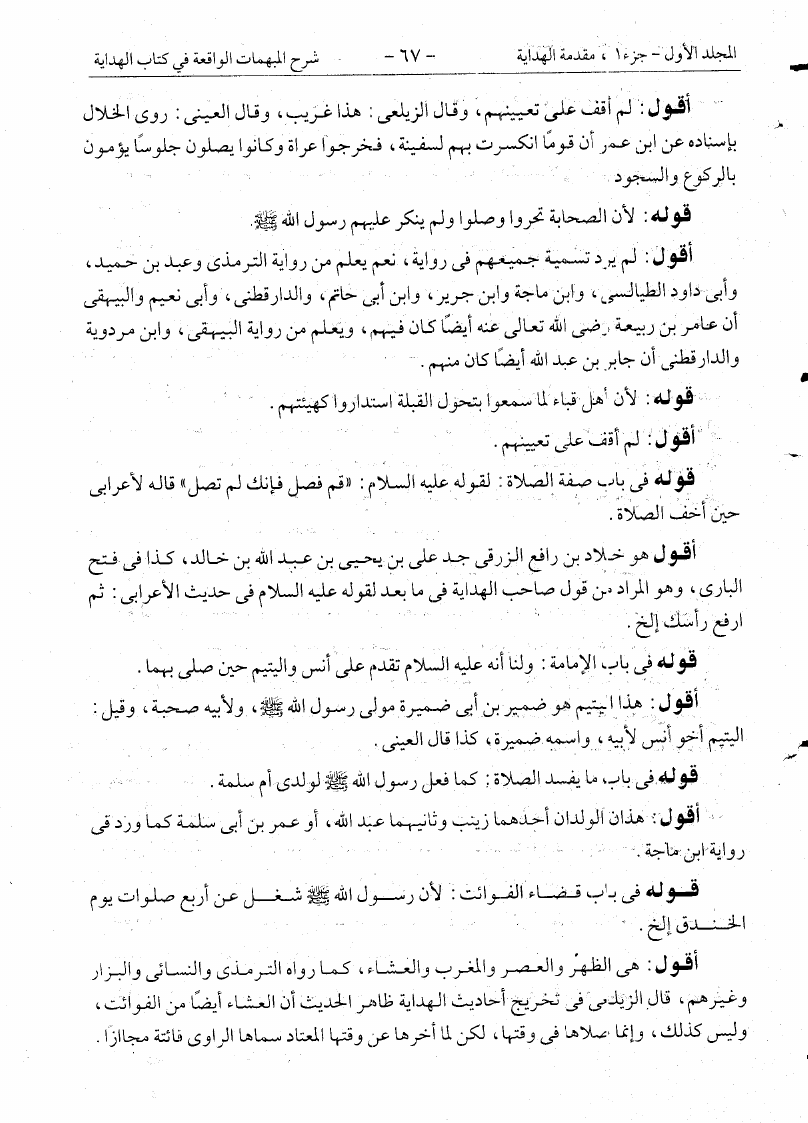 المجلد الأول - جزء ١ ، مقدمة الهداية - ٦٧ - شرح المبهمات الواقعة في كتاب الهداية
أقول: لم أقف على تعيينهم، وقال الزيلعى: هذا غريب، وقال العينى: روى الخلال
بإسناده عن ابن عمر أن قومًا انكسرت بهم لسفينة، فخرجوا عراة وكانوا يصلون جلوسًا يؤمون
بالركوع والسجود
قوله: لأن الصحابة تحروا وصلوا ولم ينكر عليهم رسول الله ﷺ.
أقول: لم يرد تسمية جميعهم فى رواية، نعم يعلم من رواية الترمذى وعبد بن حميد،
وأبى داود الطيالسى، وابن ماجة وابن جرير، وابن أبى حاتم، والدارقطنى، وأبى نعيم والبيهقى
أن عامر بن ربيعة رضى الله تعالى عنه أيضًا كان فيهم، ويعلم من رواية البيهقى، وابن مردوية
والدارقطنى أن جابر بن عبد الله أيضًا كان منهم.
قوله: لأن أهل قباء لما سمعوا بتحول القبلة استداروا كهيئتهم.
أقول: لم أقف على تعيينهم.
قوله فى باب صفة الصلاة: لقوله عليه السلام: «قم فصل فإنك لم تصل» قاله لأعرابى
حين أخف الصلاة.
أقول هو خلاد بن رافع الزرقى جد على بن يحيى بن عبد الله بن خالد، كذا فى فتح
البارى، وهو المراد من قول صاحب الهداية فى ما بعد لقوله عليه السلام فى حديث الأعرابى: ثم
ارفع رأسك إلخ.
قوله فى باب الإمامة: ولنا أنه عليه السلام تقدم على أنس واليتيم حين صلى بهما.
أقول: هذا اليتيم هو ضمير بن أبى ضميرة مولى رسول الله ﷺ، ولأبيه صحبة، وقيل:
اليتيم أخو أنس لأبيه، واسمه ضميرة، كذا قال العينى.
قوله فى باب ما يفسد الصلاة: كما فعل رسول الله ﷺ لولدى أم سلمة.
أقول: هذان الولدان أحدهما زينب وثانيهما عبد الله، أو عمر بن أبى سلمة كما ورد فى
رواية ابن ماجة.
قوله فى باب قضاء الفوائت: لأن رسول الله ﷺ شغل عن أربع صلوات يوم
الخندق إلخ.
أقول: هى الظهر والعصر والمغرب والعشاء، كما رواه الترمذى والنسائى والبزار
وغيرهم، قال الزيلعى فى تخريج أحاديث الهداية ظاهر الحديث أن العشاء أيضًا من الفوائت،
وليس كذلك، وإنما صلاها فى وقتها، لكن لما أخرها عن وقتها المعتاد سماها الراوى فائتة مجاازا.